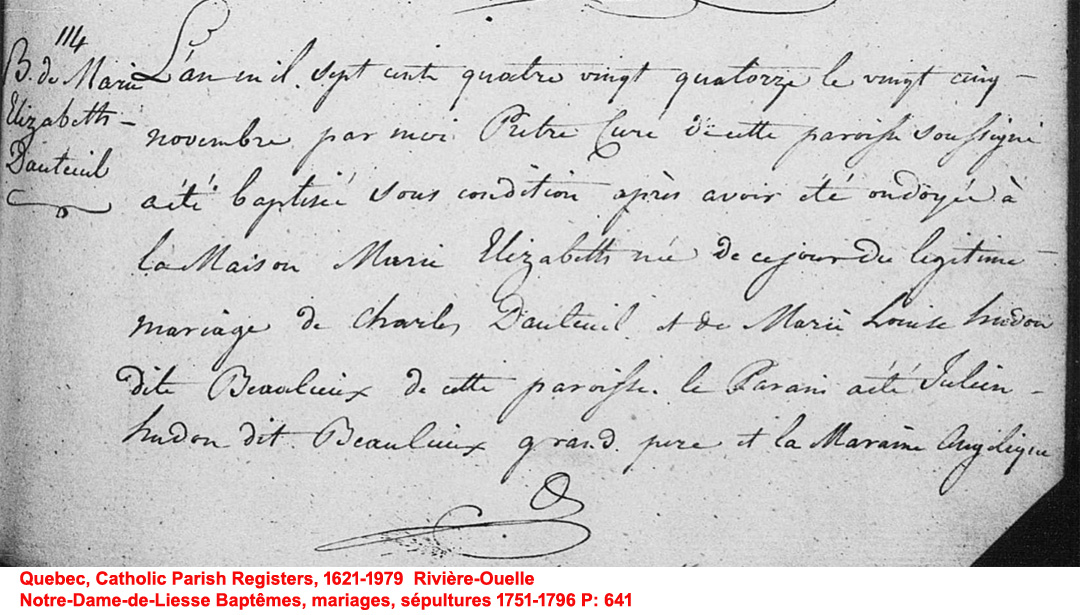 114
B. de Marie
Elizabeth
Dauteuil
L'an mil sept cents quatre vingt quatorze le vingt cinq
novembre par moi Prêtre Curé de cette paroisse soussigné
a été baptisée sous condition après avoir été ondoyée à
la Maison Marie Elizabeth née de ce jour du legitime
mariage de Charles Dauteuil et de Marie Louise hudon
dite Beaulieux de cette paroisse. le Parain a été Julien
hudon dit Beaulieux grand pere et la Maraine Angelique
Quebec, Catholic Parish Registers, 1621-1979 Rivière-Ouelle
Notre-Dame-de-Liesse Baptêmes, mariages, sépultures 1751-1796 P: 641